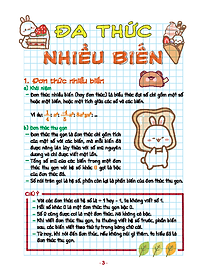 ĐA THỨC
NHIỀU BIẾN
1. Đơn thức nhiều biến
a) Khái niệm
- Đơn thức nhiều biến (hay đơn thức) là biểu thức đại số chỉ gồm một số
hoặc một biến, hoặc một tích giữa các số và các biến.
Ví dụ:
b) Đơn thức thu gọn
- Đơn thức thu gọn là đơn thức chỉ gồm tích
của một số với các biến, mà mỗi biến đã
được nâng lên lũy thừa với số mũ nguyên
dương và chỉ được viết một lần.
- Tổng số mũ của các biến trong một đơn
thức thu gọn với hệ số khác 0 gọi là bậc
của đơn thức đó.
- Số nói trên gọi là hệ số, phần còn lại là phần biến của đơn thức thu gọn.
CHÚ Ý
- Với các đơn thức có hệ số là – 1 hay + 1, ta không viết số 1.
- Mỗi số khác 0 là một đơn thức thu gọn bậc 0.
- Số 0 cũng được coi là một đơn thức. Nó không có bậc.
- Khi viết đơn thức thu gọn, ta thường viết hệ số trước, phần biến
sau, các biến viết theo thứ tự trong bảng chữ cái.
- Từ nay, khi nói đến đơn thức, nếu không nói gì thêm, ta hiểu đó là
đơn thức thu gọn.
- 3 -